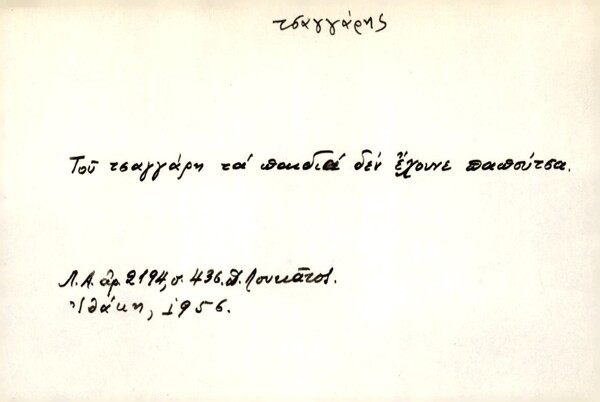 τσαγγάρης
Τοῦ τσαγγάρη τά παιδιά δέν ἔχουνε παπούτσα.
Λ.Α. ἀρ. 2194, σ. 436. Δ. Λουκᾶτος.
Ἰθάκη, 1956.